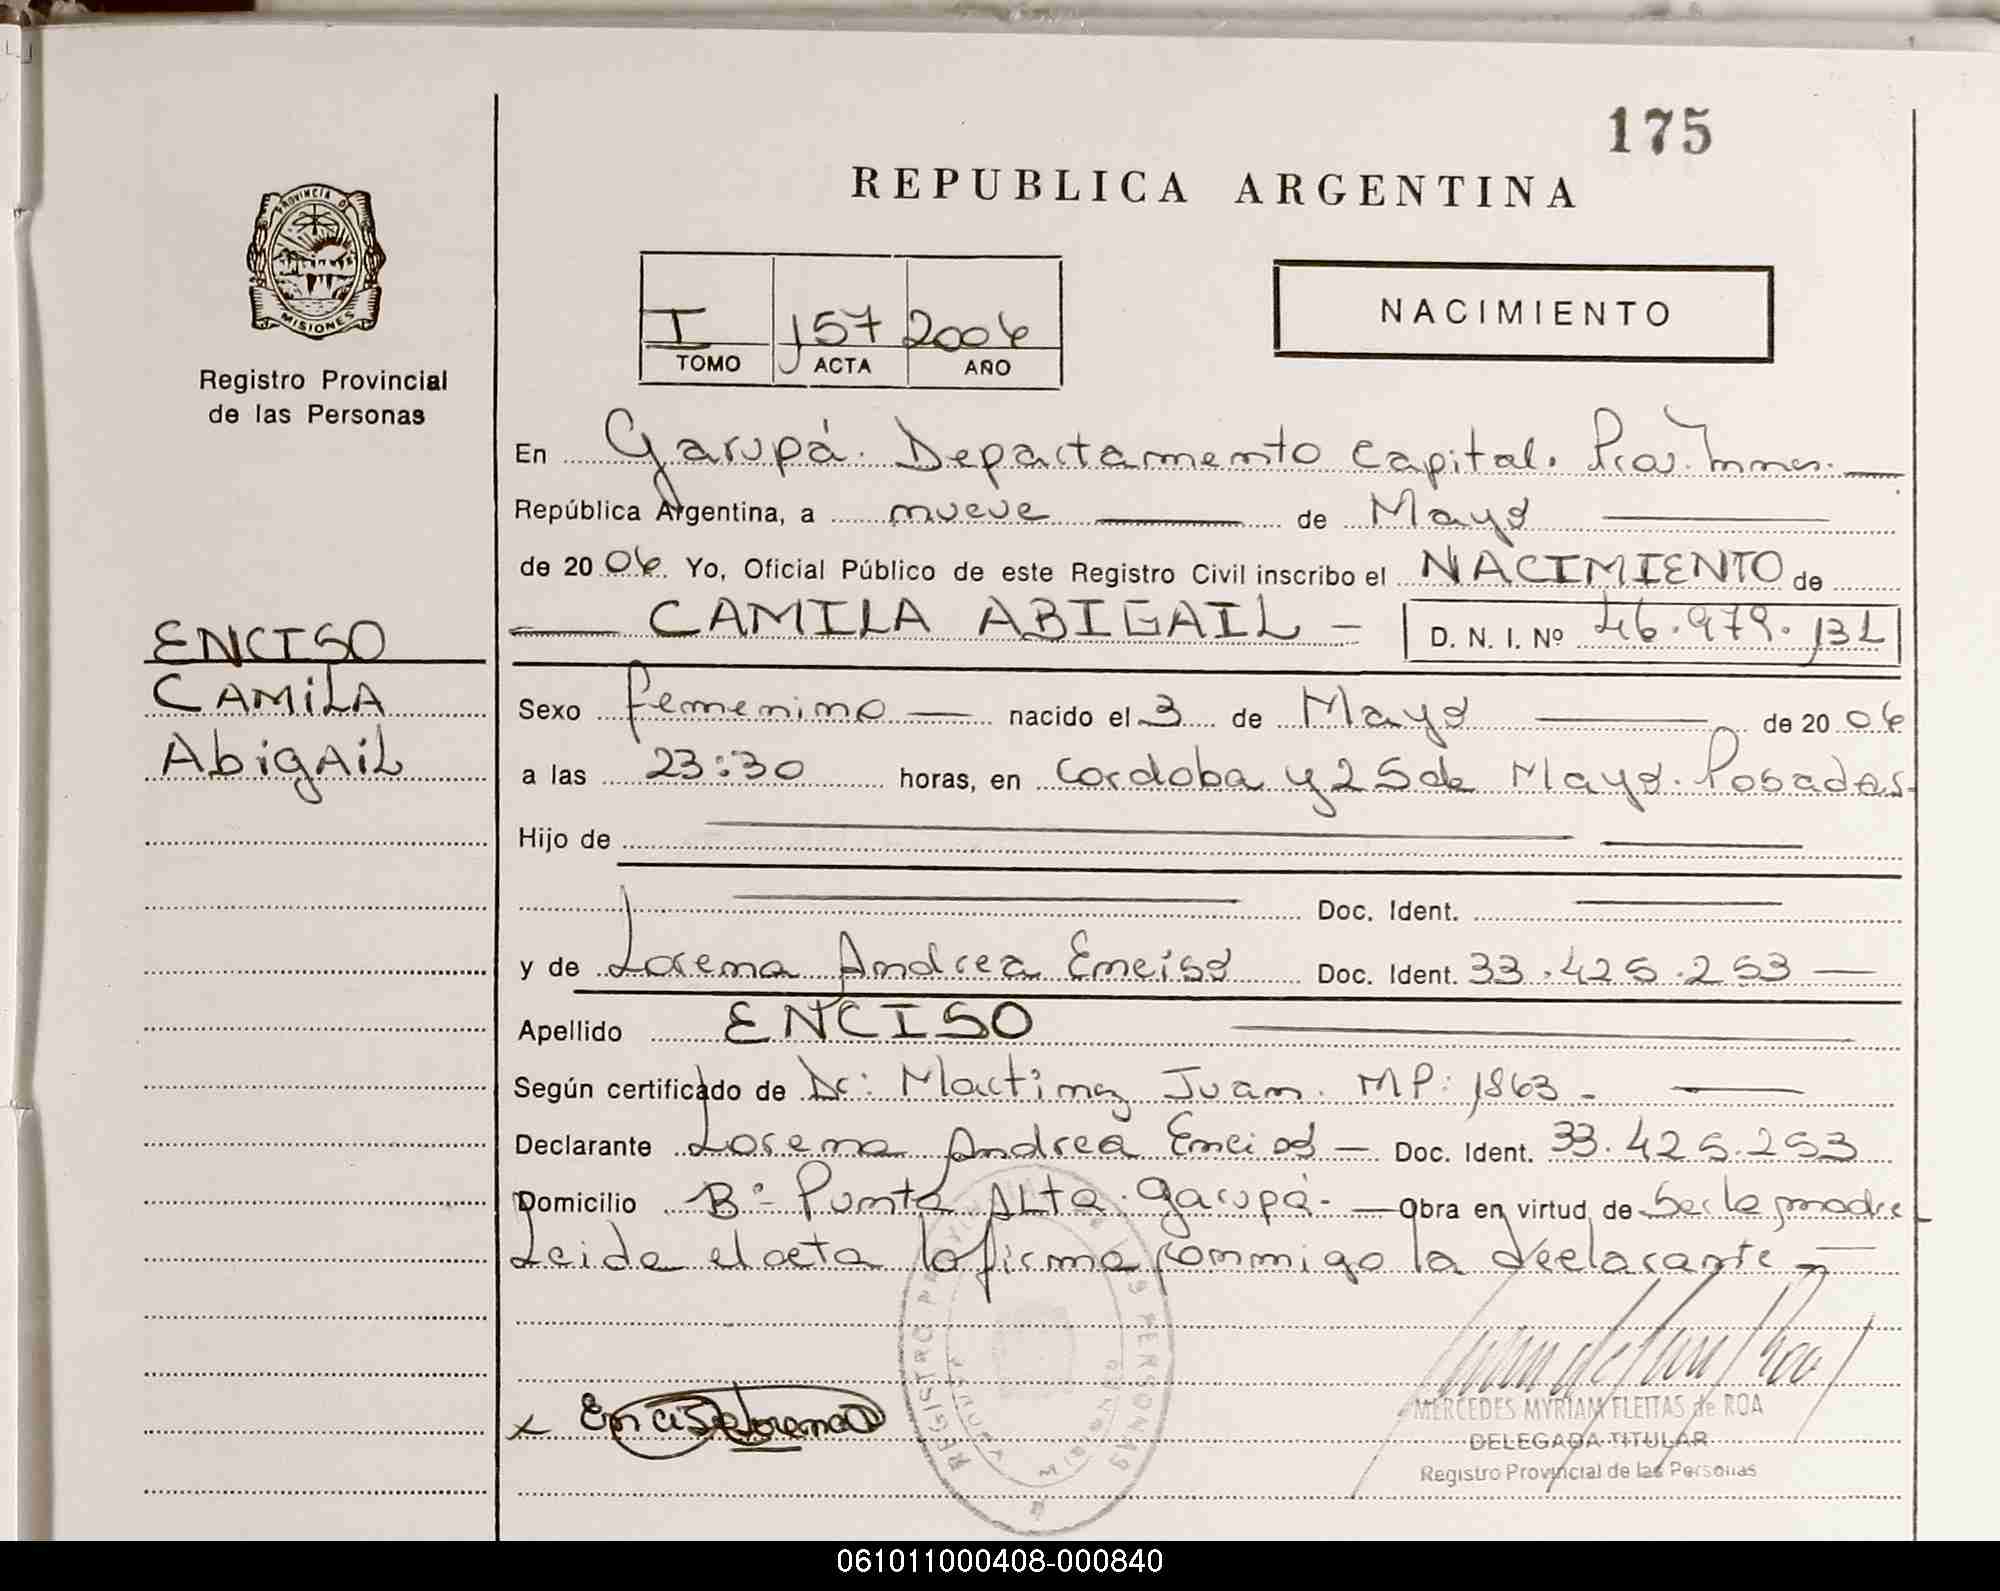 175
REPUBLICA ARGENTINA
PROVINCIA D
MISIONES
Registro Provincial
de las Personas
I 157 2006
TOMO ACTA AÑO
NACIMIENTO
En Garupá. Departamento Capital.
República Argentina, a nueve de Mayo
de 2006 Yo, Oficial Público de este Registro Civil inscribo el NACIMIENTO de
CAMILA ABIGAIL - D. N. I. Nº 46.979.132
ENCISO
CAMiLA
AbigAiL
Sexo femenino nacido el 3 de Mayo de 2006
a las 23:30 horas, en Cordoba y 25 de Mayo. Posadas-
Hijo de
Doc. Ident.
y de Lorena Andrea Enciso Doc. Ident. 33.425.253
Apellido ENCISO
Según certificado de Dr: Martinez Juan. MP: 1863 -
Declarante Lorena Andrea Enciso - Doc. Ident. 33.425.253
Domicilio Bº Punta ALta. Garupá- Obra en virtud de Ser la madre
Leida el acta la firma conmigo la declarante
x Enciso Lorena
REGISTRO PROVINCIAL DE LAS PERSONAS
MERCEDES MYRIAM FLEITAS de ROA
DELEGADA TITULAR
Registro Provincial de las Personas
061011000408-000840